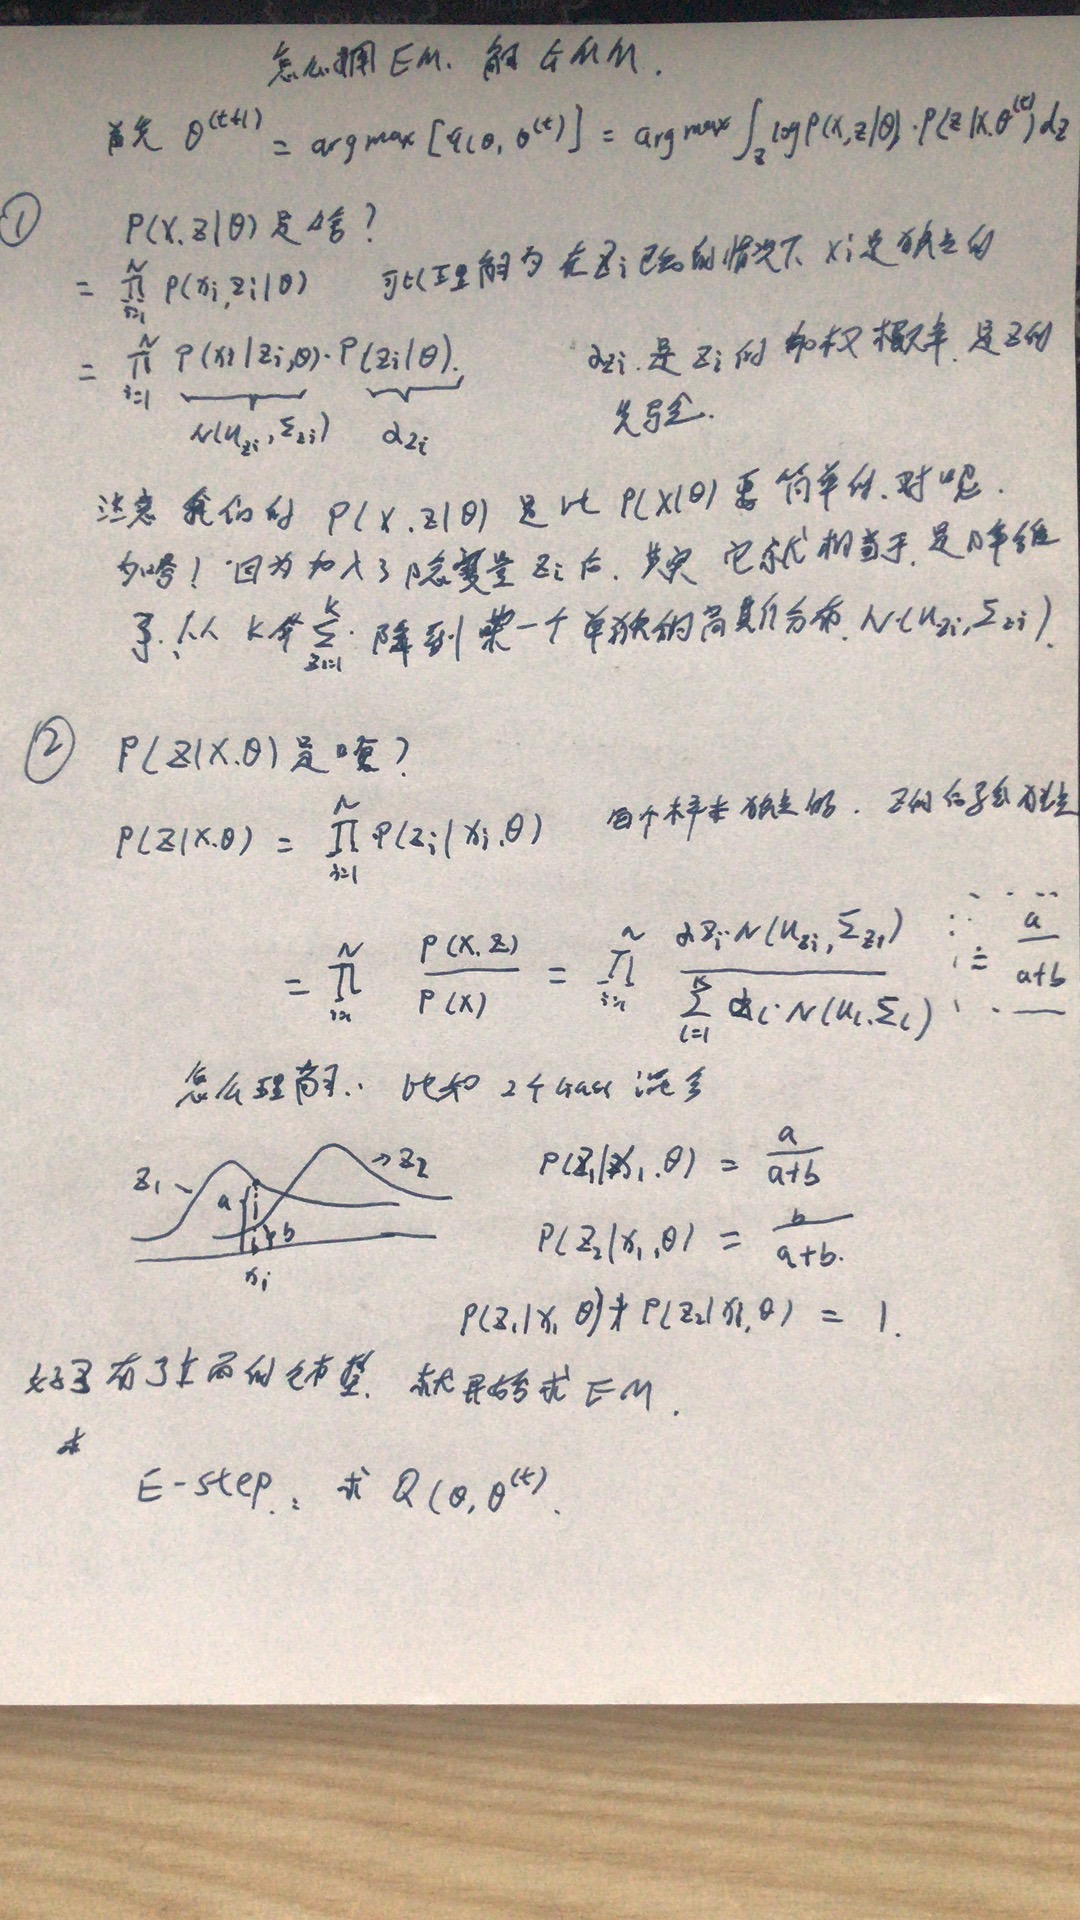 怎么用 EM. 解 GMM.
首先 θ^(t+1) = argmax [Q(θ, θ^(t))] = argmax ∫_z log P(X,Z|θ) · P(Z|X,θ^(t)) dz
① P(X,Z|θ) 是啥?
= ∏_{i=1}^N P(xi, zi|θ) 可以理解为 在 Zi 已知的情况下 xi 是独立的
= ∏_{i=1}^N P(xi|zi,θ) · P(zi|θ). αzi 是 zi 的 加权 概率. 是 Z 的
N(μzi, Σzi) αzi 先验.
注意 我们的 P(X,Z|θ) 是比 P(X|θ) 要 简单的. 对吧.
为啥! 因为 加入了 隐变量 Zi 后. 其实 它就 相当于 是降维
了. 从 K个 Σ_{zi=1}^K 降到 某一个 单独的高斯分布 N(μzi, Σzi).
② P(Z|X,θ) 是啥?
P(Z|X,θ) = ∏_{i=1}^N P(zi|xi,θ) 每个样本 独立的. Z的 独立
= ∏_{i=1}^N P(X,Z)/P(X) = ∏_{i=1}^N αzi·N(μzi, Σzi) / Σ_{l=1}^K αl·N(μl,Σl) = a/(a+b)
怎么理解. 比如 2个 Gauss 混合
Z1 a b xi → Z2
P(Z1|x1,θ) = a/(a+b)
P(Z2|x1,θ) = b/(a+b).
P(Z1|x1,θ) + P(Z2|x1,θ) = 1.
好了 有了上面的 就开始求 EM.
求
E-step: 求 Q(θ, θ^(t).